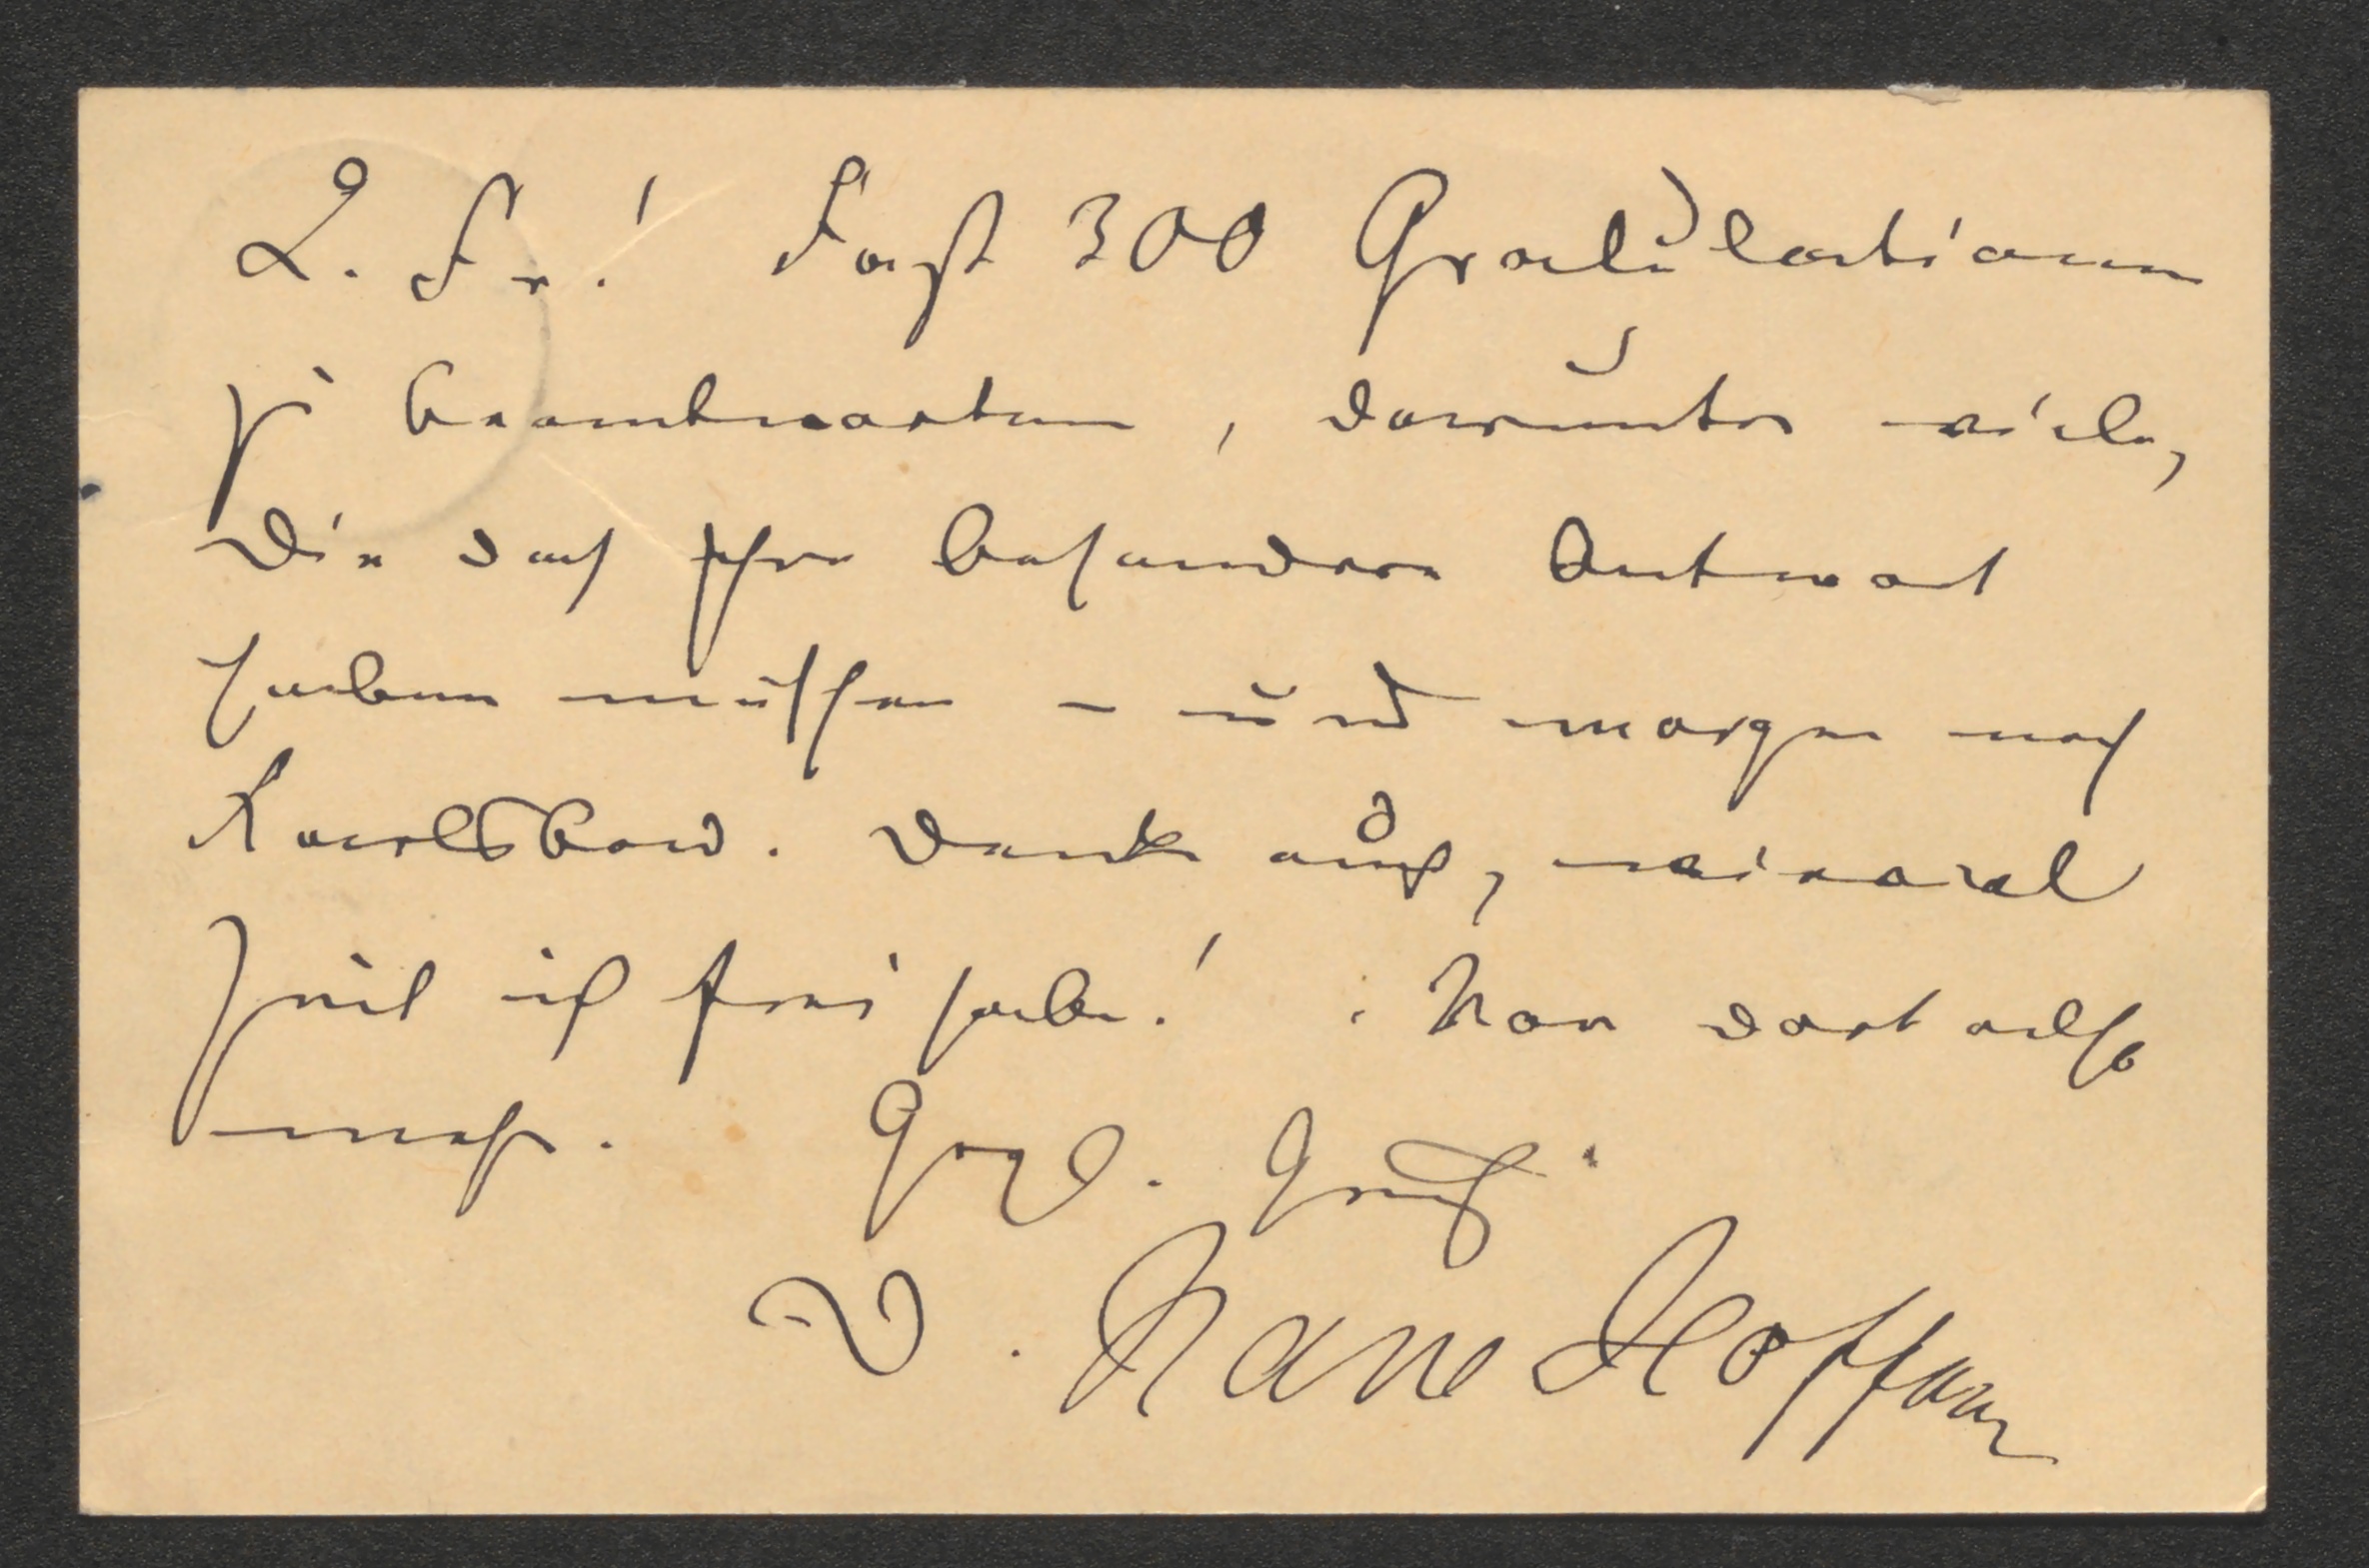 L. Fr.! Fast 300 Gratulationen
zu beantworten, darunter viele,
die doch ihre besondere Antwort
haben müssen – und morgen nach
Karlsbad. Denke auch, wieviel
Zeit ich frei habe! Von dort also
mehr. Herzl. Gruß
D. Hans Hoffmann